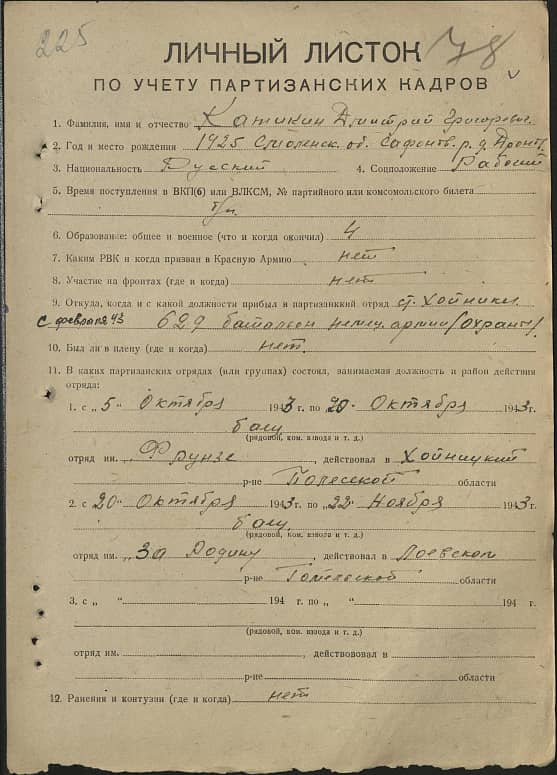 225
78
ЛИЧНЫЙ ЛИСТОК
ПО УЧЕТУ ПАРТИЗАНСКИХ КАДРОВ
1. Фамилия, имя и отчество Катикин Дмитрий Григорьевич
2. Год и место рождения 1925 Смоленск. об. Сафонов. р. д.
3. Национальность Русский 4. Соцположение Рабочий
5. Время поступления в ВКП(б) или ВЛКСМ, № партийного или комсомольского билета
б/п
6. Образование: общее и военное (что и когда окончил) 4
7. Каким РВК и когда призван в Красную Армию нет
8. Участие на фронтах (где и когда) нет
9. Откуда, когда и с какой должности прибыл в партизанский отряд ст. Хойники
с февраля 43 629 батальон немец. армии (охрана)
10. Был ли в плену (где и когда) нет.
11. В каких партизанских отрядах (или группах) состоял, занимаемая должность и район действия
отряда:
1. с „5" Октября 1943 г. по „20" Октября 1943 г.
боец
(рядовой, ком. взвода и т. д.)
отряд им. „Фрунзе , действовал в Хойницкий
р-не Полесской области
2. с „20" Октября 1943 г. по „22" Ноября 1943 г.
боец
(рядовой, ком. взвода и т. д.)
отряд им. „За Родину , действовал в Лоевском
р-не Гомельской области
3. с „ " 194 г. по „ " 194 г.
(рядовой, ком. взвода и т. д.)
отряд им. , действовавал в
р-не области
12. Ранения и контузии (где и когда) нет